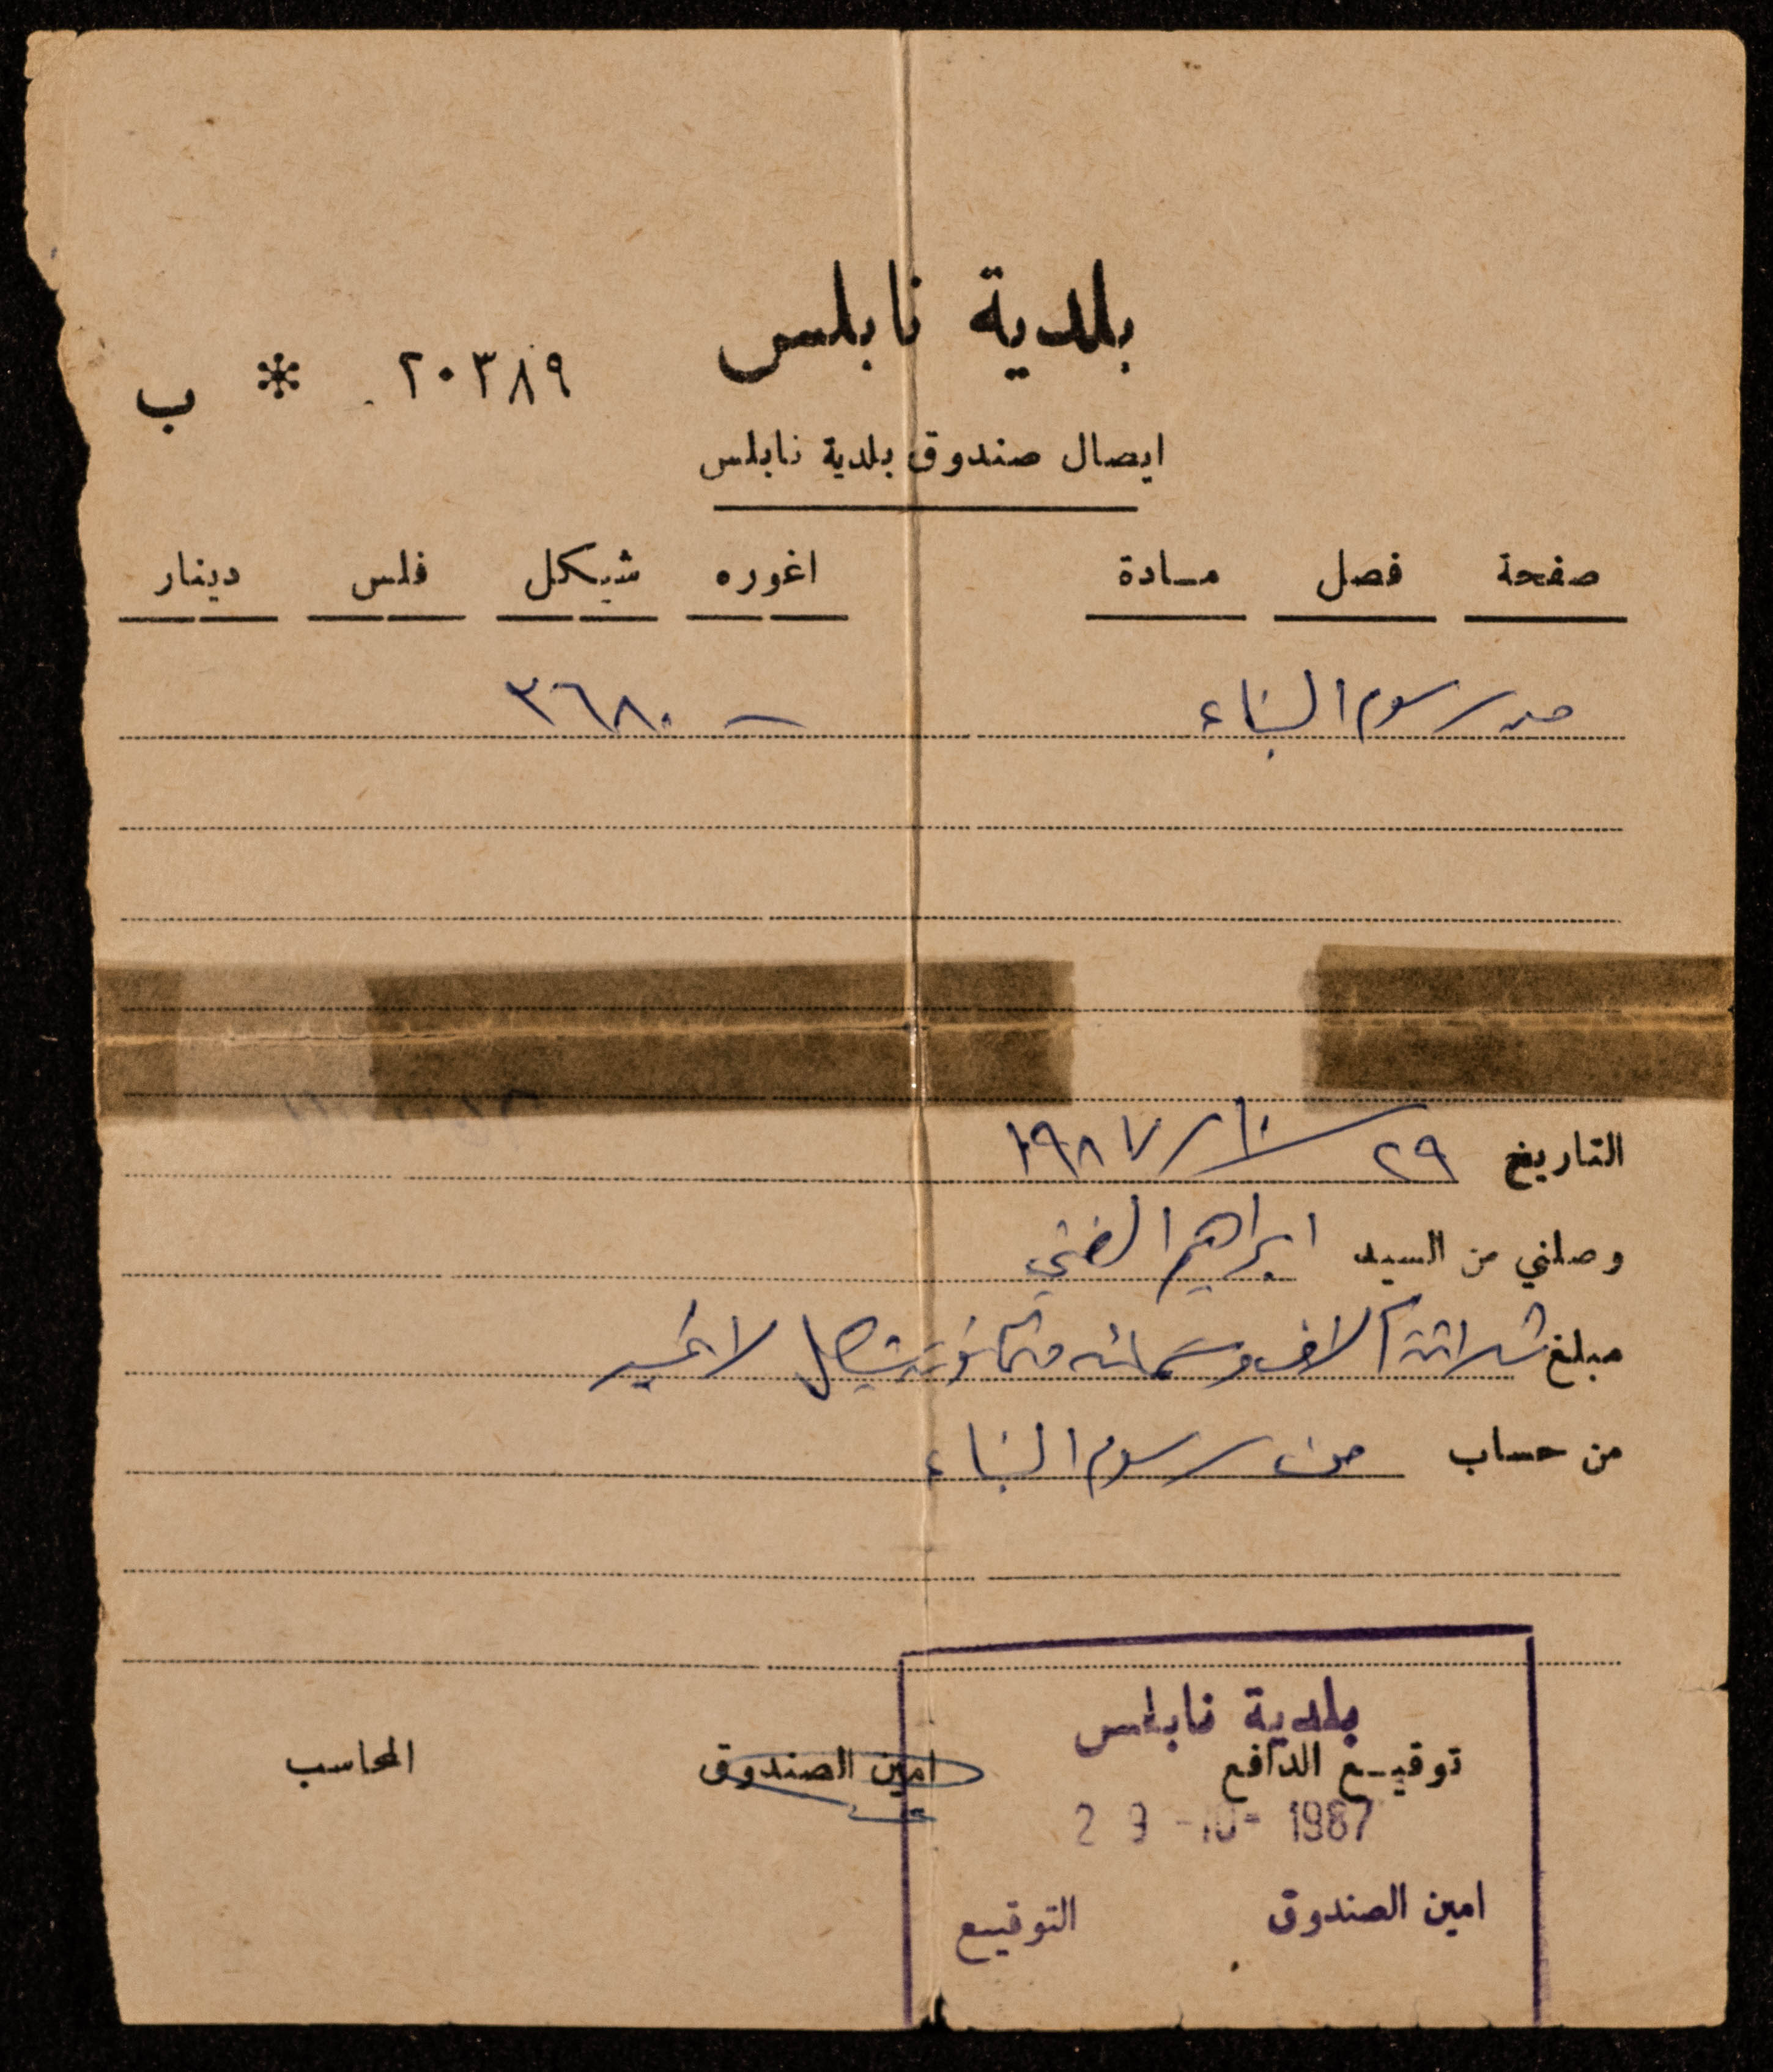 بلدية نابلس
ب * ٢٠٣٨٩
ايصال صندوق بلدية نابلس
صفحة فصل مادة اغوره شيكل فلس دينار
من رسوم البناء — ٣٦٨٠
التاريخ ٢٩/١٠/١٩٨٧
وصلني من السيد ابراهيم الفني
مبلغ ثلاثة آلاف وستمائه وثمانون شيكل لا غير
من حساب من رسوم البناء
بلدية نابلس
توقيع الدافع امين الصندوق المحاسب
29-10-1987
امين الصندوق التوقيع